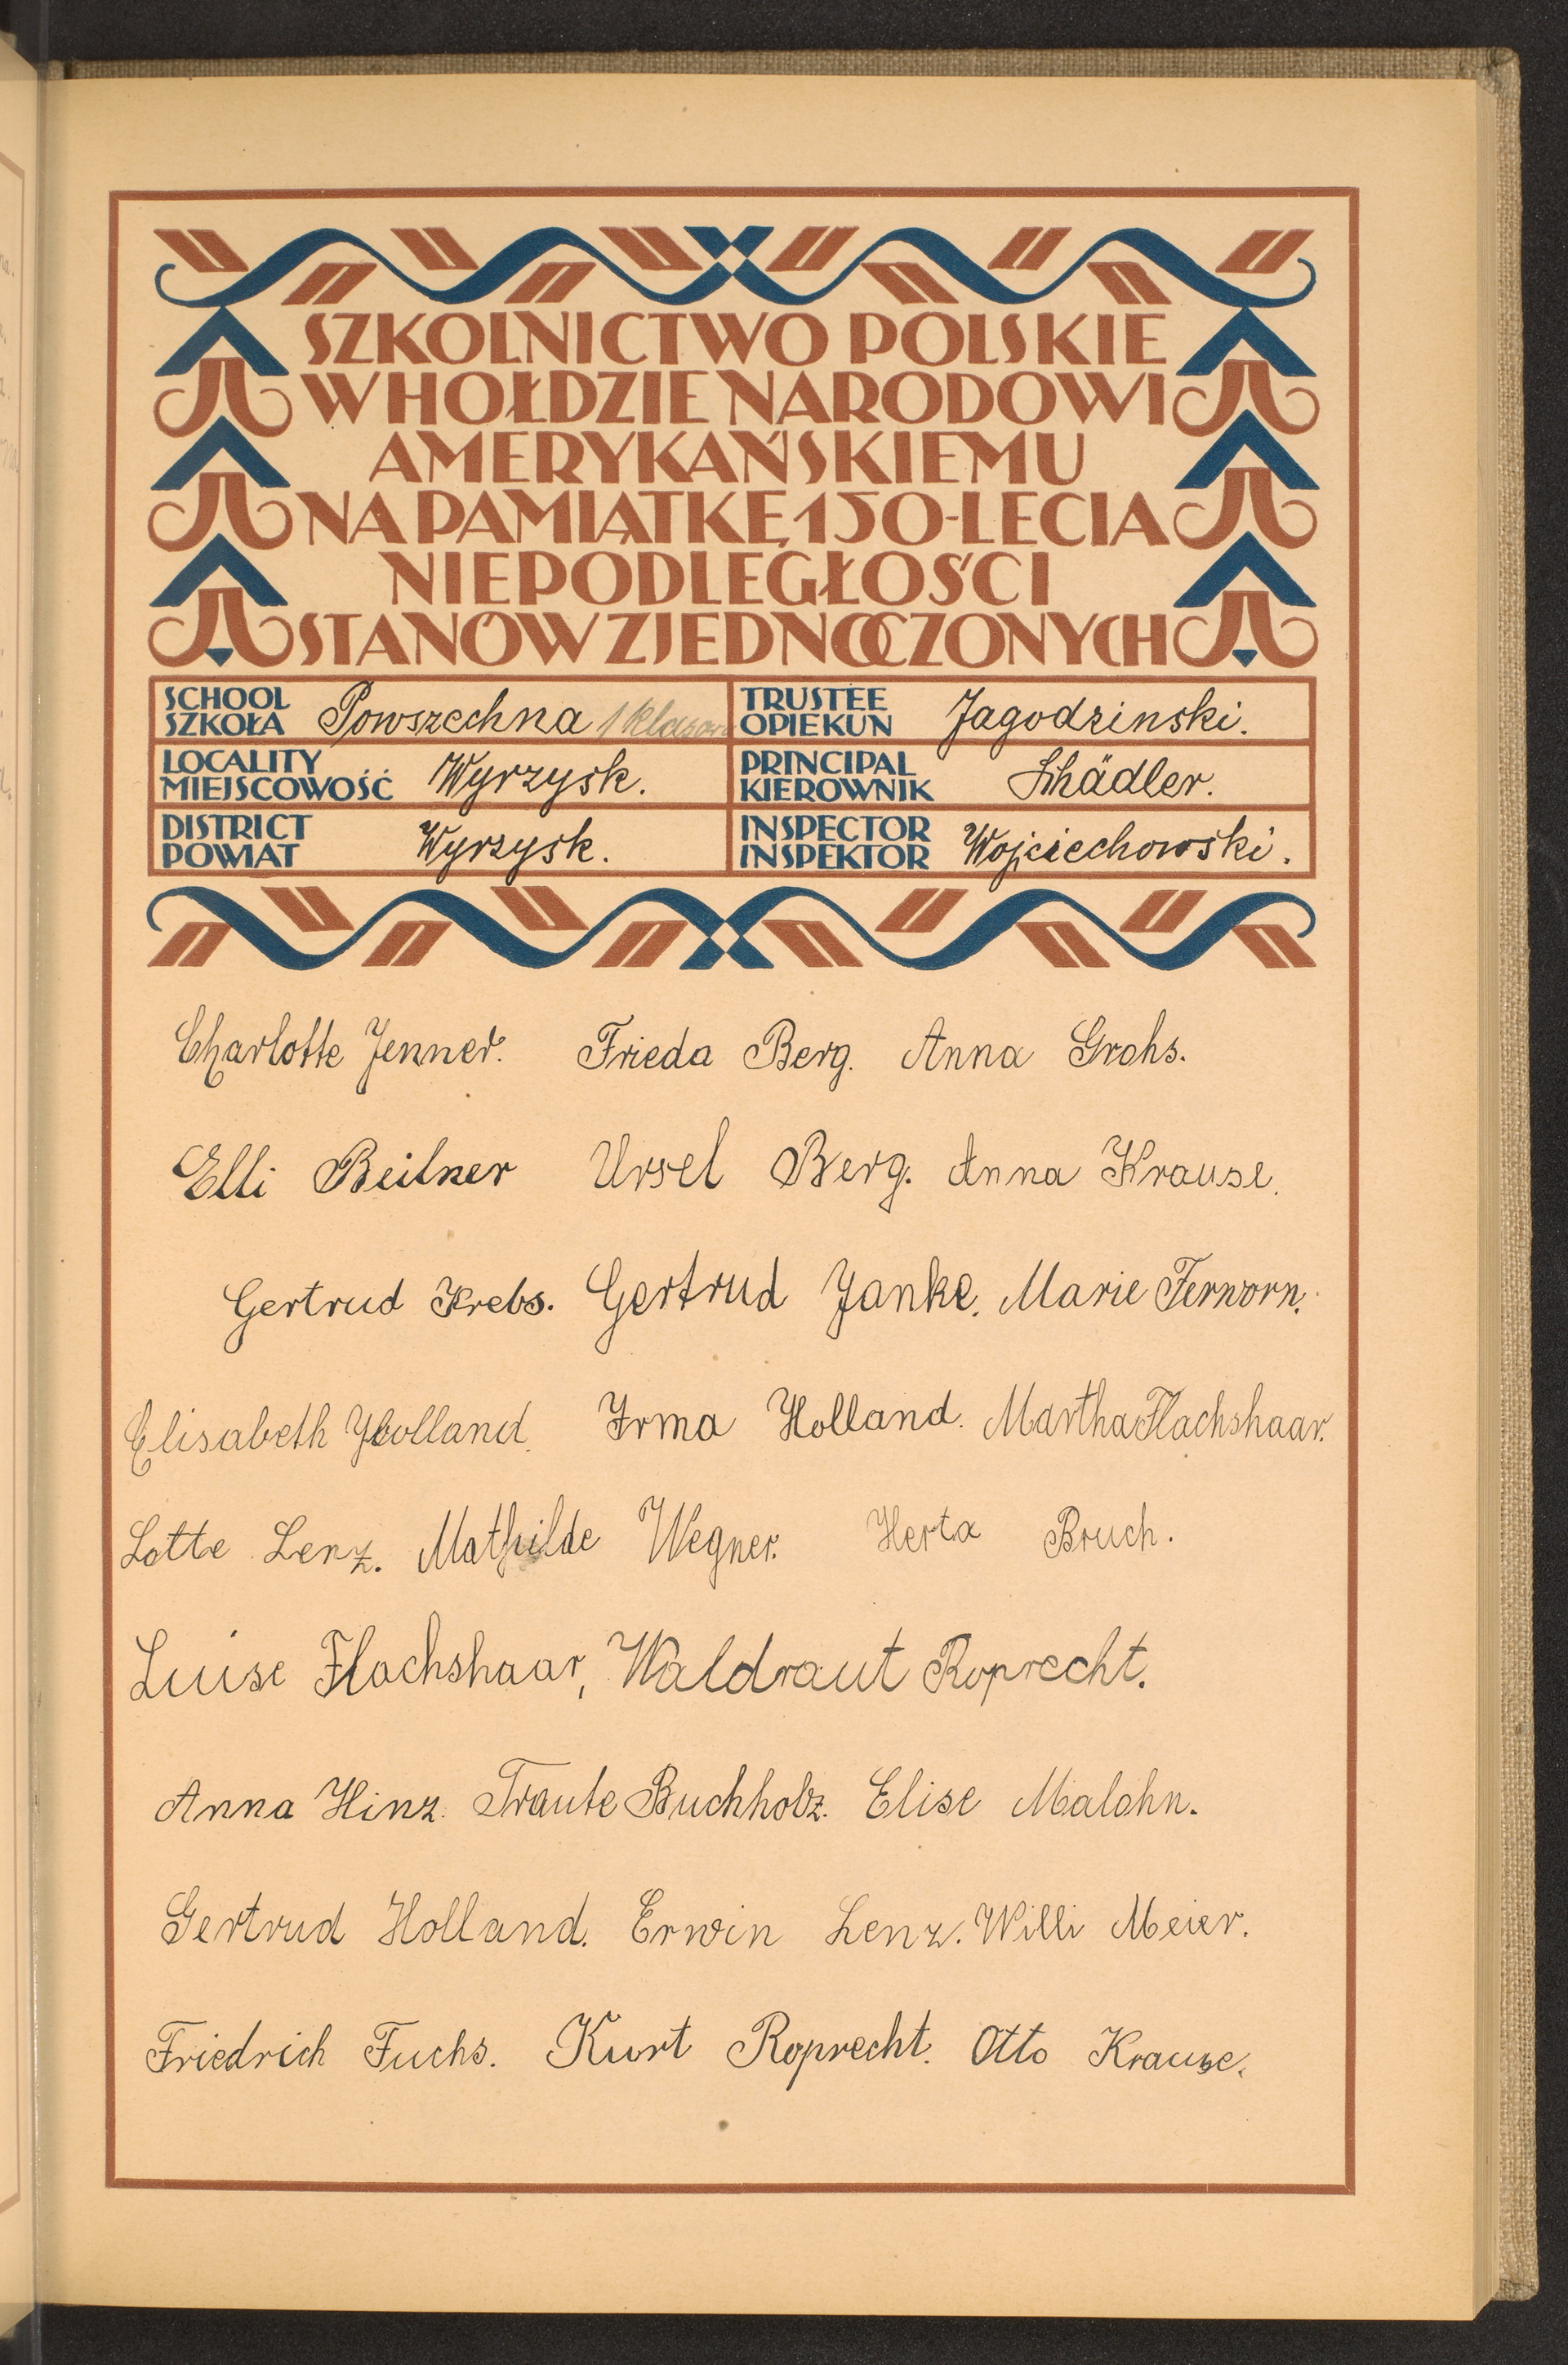 SZKOLNICTWO POLSKIE
W HOŁDZIE NARODOWI
AMERYKAŃSKIEMU
NA PAMIĄTKĘ 150-LECIA
NIEPODLEGŁOŚCI
STANÓW ZJEDNOCZONYCH
SCHOOL SZKOŁA Powszechna 1 klasowa
TRUSTEE OPIEKUN Jagodzinski.
LOCALITY MIEJSCOWOŚĆ Wyrzysk.
PRINCIPAL KIEROWNIK Schädler.
DISTRICT POWIAT Wyrzysk.
INSPECTOR INSPEKTOR Wojciechowski.
Charlotte Jenner. Frieda Berg. Anna Grohs.
Elli Beilner Ursel Berg. Anna Krause.
Gertrud Krebs. Gertrud Janke. Marie Ferworn.
Elisabeth Holland. Irma Holland. Martha Flachshaar.
Lotte Lenz. Mathilde Wegner. Herta Bruch.
Luise Flachshaar, Waldraut Roprecht.
Anna Hinz. Traute Buchholz. Elise Malohn.
Gertrud Holland. Erwin Lenz. Willi Meier.
Friedrich Fuchs. Kurt Roprecht. Otto Krause.